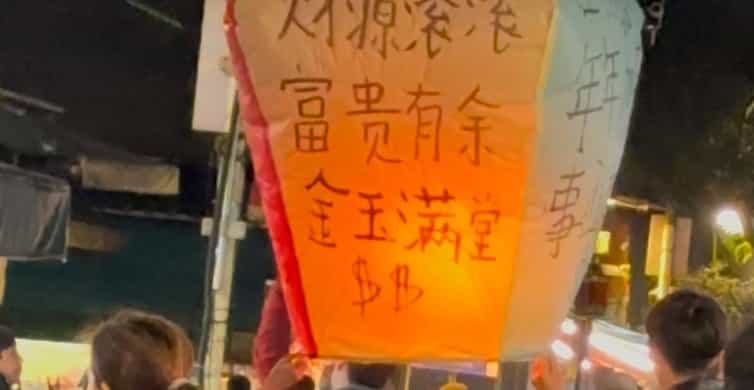 财源滚滚
富贵有余
金玉满堂
$ $
年
事